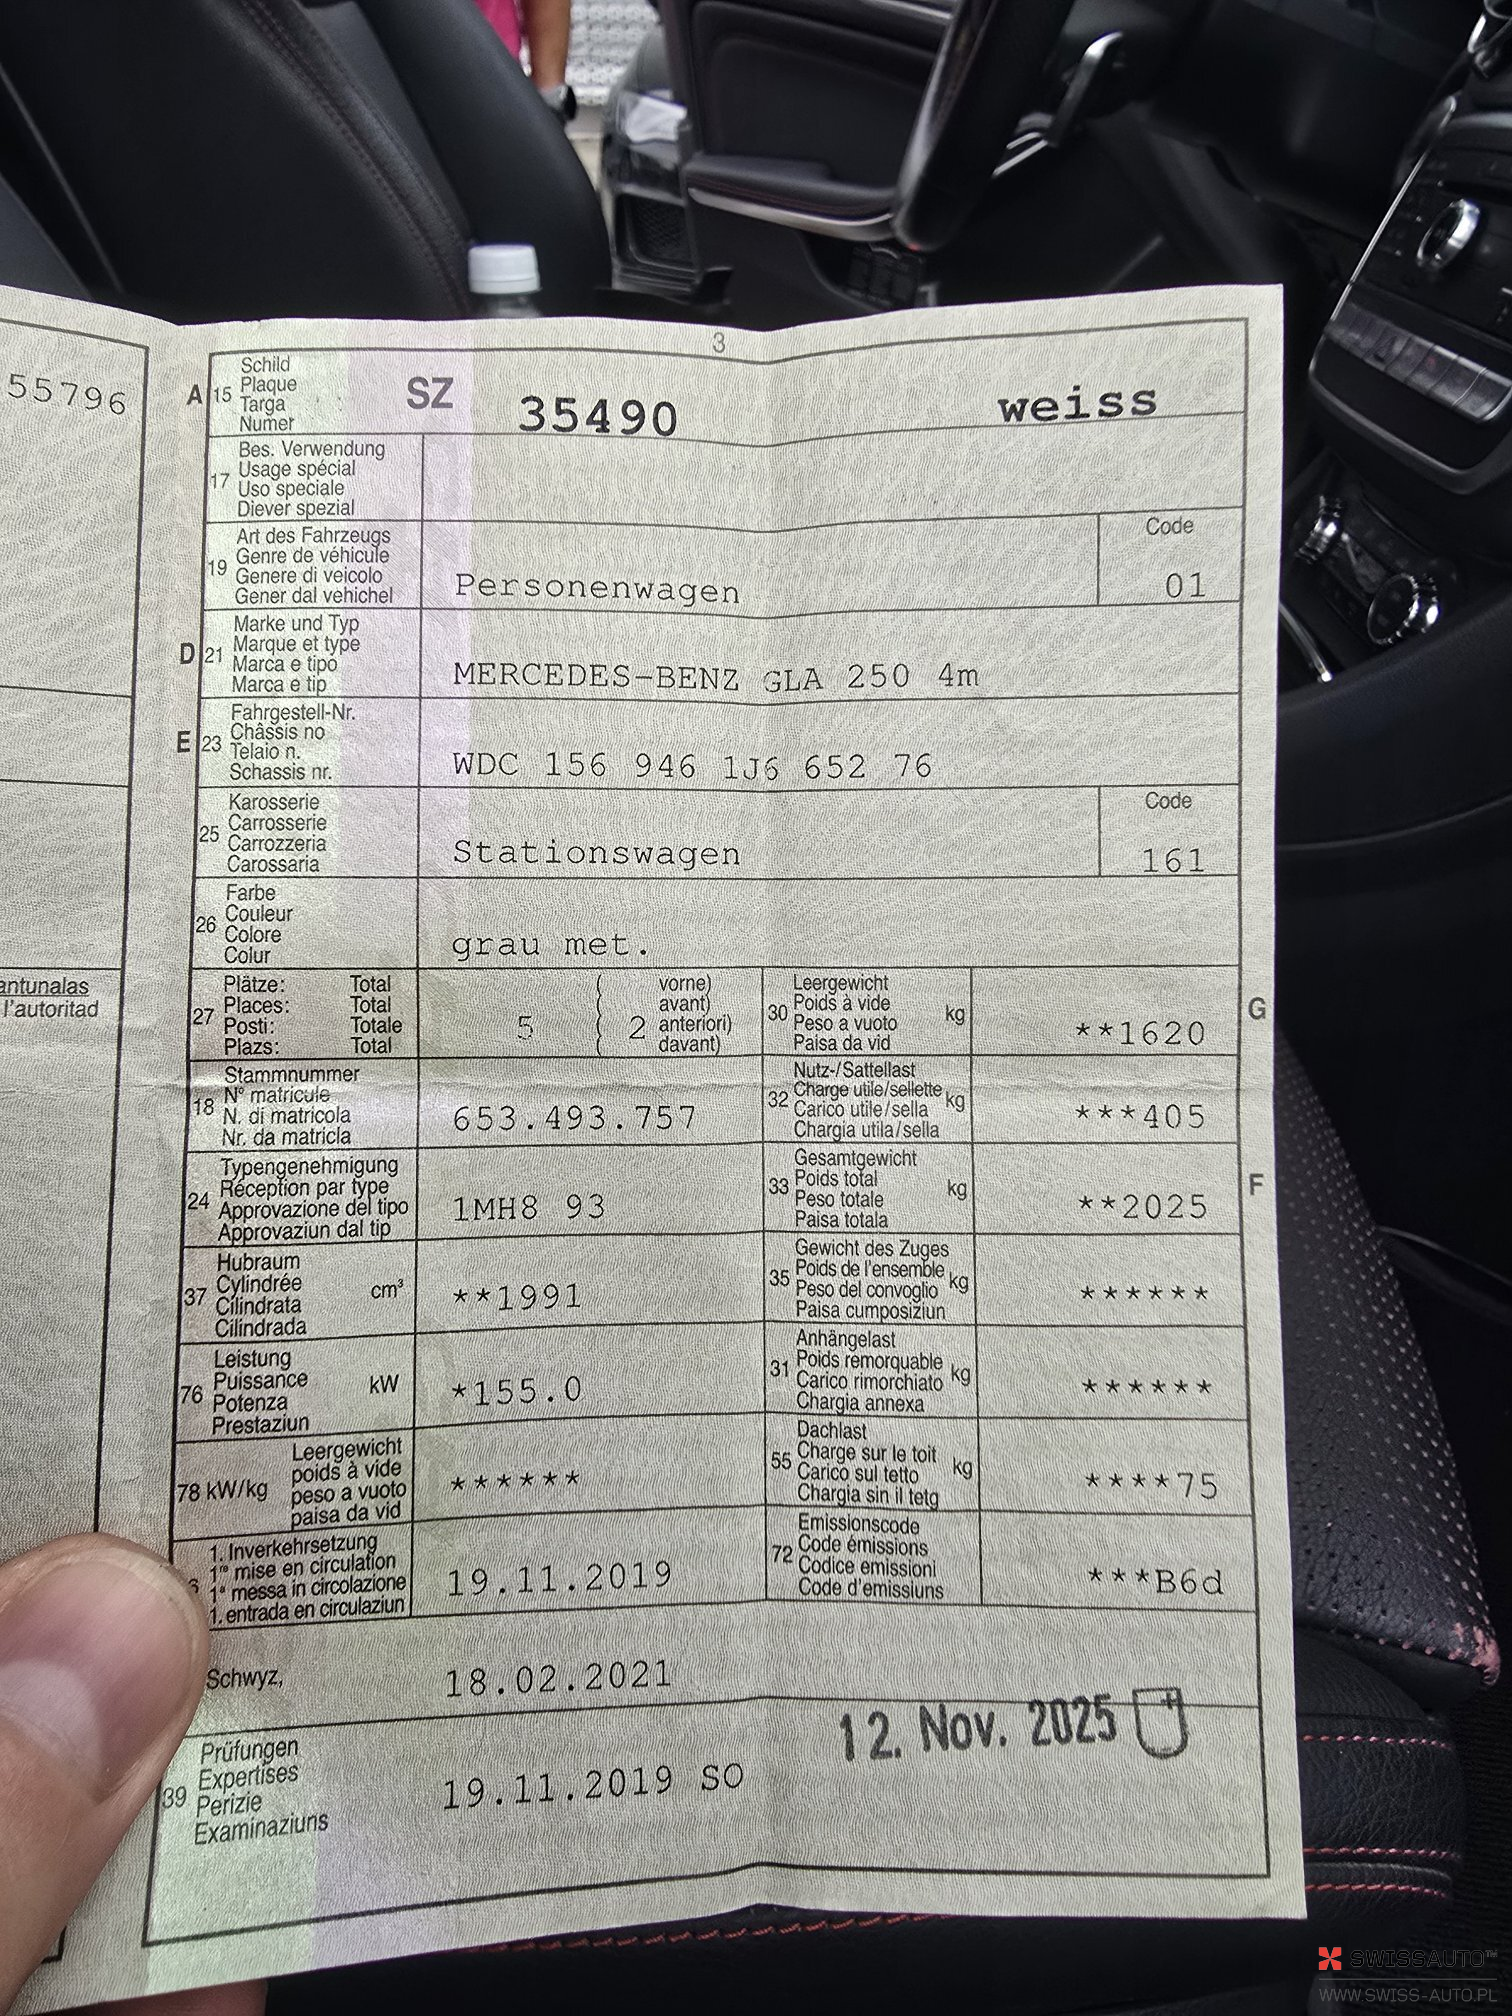 55796
antunalas
l'autoritad
3
A 15 Schild
Plaque
Targa
Numer
SZ 35490 weiss
17 Bes. Verwendung
Usage spécial
Uso speciale
Diever spezial
19 Art des Fahrzeugs
Genre de véhicule
Genere di veicolo
Gener dal vehichel
Personenwagen
Code
01
D 21 Marke und Typ
Marque et type
Marca e tipo
Marca e tip
MERCEDES-BENZ GLA 250 4m
E 23 Fahrgestell-Nr.
Châssis no
Telaio n.
Schassis nr.
WDC 156 946 1J6 652 76
25 Karosserie
Carrosserie
Carrozzeria
Carossaria
Stationswagen
Code
161
26 Farbe
Couleur
Colore
Colur
grau met.
27 Plätze: Total
Places: Total
Posti: Totale
Plazs: Total
5 ( 2 vorne)
( avant)
( anteriori)
( davant)
30 Leergewicht
Poids à vide
Peso a vuoto
Paisa da vid
kg
**1620
G
18 Stammnummer
N° matricule
N. di matricola
Nr. da matricla
653.493.757
32 Nutz-/Sattellast
Charge utile/sellette
Carico utile/sella
Chargia utila/sella
kg
***405
24 Typengenehmigung
Réception par type
Approvazione del tipo
Approvaziun dal tip
1MH8 93
33 Gesamtgewicht
Poids total
Peso totale
Paisa totala
kg
**2025
F
37 Hubraum
Cylindrée
Cilindrata
Cilindrada
cm³
**1991
35 Gewicht des Zuges
Poids de l'ensemble
Peso del convoglio
Paisa cumposiziun
kg
******
76 Leistung
Puissance
Potenza
Prestaziun
kW
*155.0
31 Anhängelast
Poids remorquable
Carico rimorchiato
Chargia annexa
kg
******
78 kW/kg Leergewicht
poids à vide
peso a vuoto
paisa da vid
******
55 Dachlast
Charge sur le toit
Carico sul tetto
Chargia sin il tetg
kg
****75
1. Inverkehrsetzung
1re mise en circulation
1a messa in circolazione
1. entrada en circulaziun
19.11.2019
72 Emissionscode
Code émissions
Codice emissioni
Code d'emissiuns
***B6d
Schwyz, 18.02.2021
39 Prüfungen
Expertises
Perizie
Examinaziuns
19.11.2019 SO
12. Nov. 2025
SWISSAUTO™
WWW.SWISS-AUTO.PL